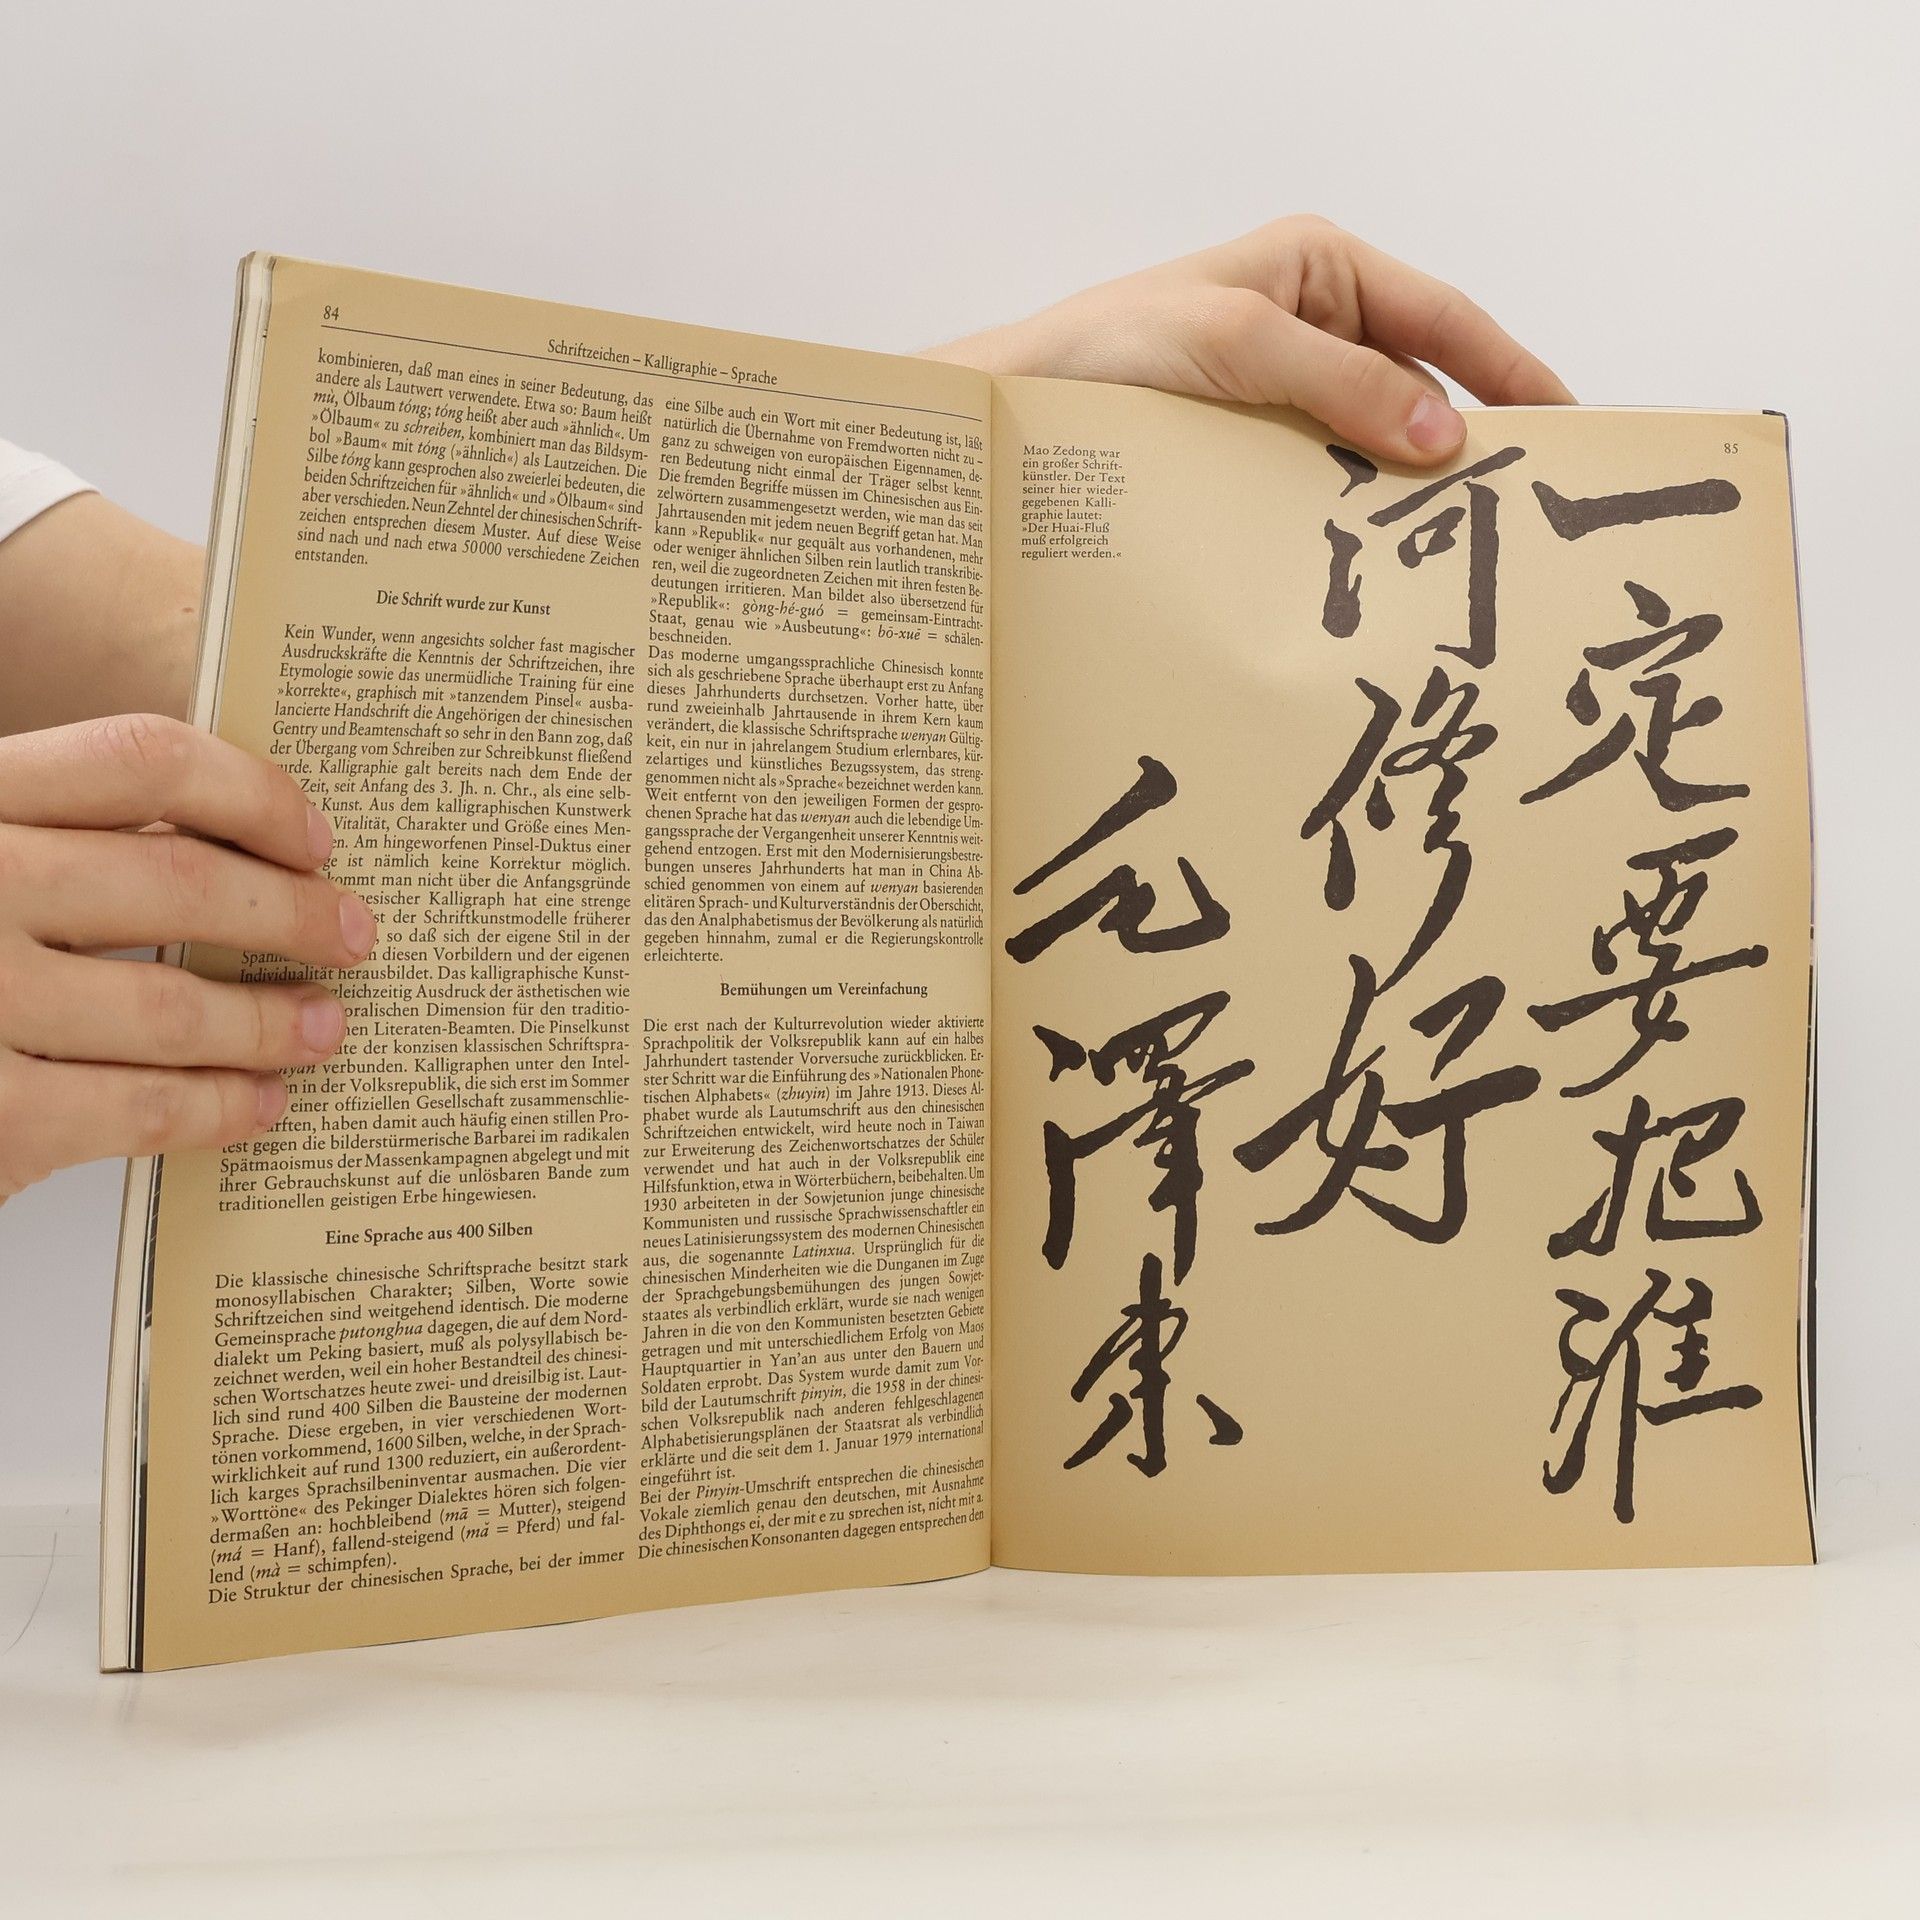 84
Schriftzeichen – Kalligraphie – Sprache
kombinieren, daß man eines in seiner Bedeutung, das
andere als Lautwert verwendete. Etwa so: Baum heißt
mù, Ölbaum tóng; tóng heißt aber auch »ähnlich«. Um
»Ölbaum« zu schreiben, kombiniert man das Bildsym-
bol »Baum« mit tóng (»ähnlich«) als Lautzeichen. Die
Silbe tóng kann gesprochen also zweierlei bedeuten, die
beiden Schriftzeichen für »ähnlich« und »Ölbaum« sind
aber verschieden. Neun Zehntel der chinesischen Schrift-
zeichen entsprechen diesem Muster. Auf diese Weise
sind nach und nach etwa 50000 verschiedene Zeichen
entstanden.
Die Schrift wurde zur Kunst
Kein Wunder, wenn angesichts solcher fast magischer
Ausdruckskräfte die Kenntnis der Schriftzeichen, ihre
Etymologie sowie das unermüdliche Training für eine
»korrekte«, graphisch mit »tanzendem Pinsel« ausba-
lancierte Handschrift die Angehörigen der chinesischen
Gentry und Beamtenschaft so sehr in den Bann zog, daß
der Übergang vom Schreiben zur Schreibkunst fließend
wurde. Kalligraphie galt bereits nach dem Ende der
Zeit, seit Anfang des 3. Jh. n. Chr., als eine selb-
Kunst. Aus dem kalligraphischen Kunstwerk
Vitalität, Charakter und Größe eines Men-
Am hingeworfenen Pinsel-Duktus einer
ist nämlich keine Korrektur möglich.
kommt man nicht über die Anfangsgründe
Kalligraph hat eine strenge
der Schriftkunstmodelle früherer
so daß sich der eigene Stil in der
diesen Vorbildern und der eigenen
Individualität herausbildet. Das kalligraphische Kunst-
gleichzeitig Ausdruck der ästhetischen wie
Dimension für den traditio-
Literaten-Beamten. Die Pinselkunst
der konzisen klassischen Schriftspra-
verbunden. Kalligraphen unter den Intel-
in der Volksrepublik, die sich erst im Sommer
einer offiziellen Gesellschaft zusammenschlie-
haben damit auch häufig einen stillen Pro-
test gegen die bilderstürmerische Barbarei im radikalen
Spätmaoismus der Massenkampagnen abgelegt und mit
ihrer Gebrauchskunst auf die unlösbaren Bande zum
traditionellen geistigen Erbe hingewiesen.
Eine Sprache aus 400 Silben
Die klassische chinesische Schriftsprache besitzt stark
monosyllabischen Charakter; Silben, Worte sowie
Schriftzeichen sind weitgehend identisch. Die moderne
Gemeinsprache putonghua dagegen, die auf dem Nord-
dialekt um Peking basiert, muß als polysyllabisch be-
zeichnet werden, weil ein hoher Bestandteil des chinesi-
schen Wortschatzes heute zwei- und dreisilbig ist. Laut-
lich sind rund 400 Silben die Bausteine der modernen
Sprache. Diese ergeben, in vier verschiedenen Wort-
tönen vorkommend, 1600 Silben, welche, in der Sprach-
wirklichkeit auf rund 1300 reduziert, ein außerordent-
lich karges Sprachsilbeninventar ausmachen. Die vier
»Worttöne« des Pekinger Dialektes hören sich folgen-
dermaßen an: hochbleibend (mā = Mutter), steigend
(má = Hanf), fallend-steigend (mǎ = Pferd) und fal-
lend (mà = schimpfen).
Die Struktur der chinesischen Sprache, bei der immer
eine Silbe auch ein Wort mit einer Bedeutung ist, läßt
natürlich die Übernahme von Fremdworten nicht zu –
ganz zu schweigen von europäischen Eigennamen, de-
ren Bedeutung nicht einmal der Träger selbst kennt.
Die fremden Begriffe müssen im Chinesischen aus Ein-
zelwörtern zusammengesetzt werden, wie man das seit
Jahrtausenden mit jedem neuen Begriff getan hat. Man
kann »Republik« nur gequält aus vorhandenen, mehr
oder weniger ähnlichen Silben rein lautlich transkribie-
ren, weil die zugeordneten Zeichen mit ihren festen Be-
deutungen irritieren. Man bildet also übersetzend für
»Republik«: gòng-hé-guó = gemeinsam-Eintracht-
Staat, genau wie »Ausbeutung«: bō-xuē = schälen-
beschneiden.
Das moderne umgangssprachliche Chinesisch konnte
sich als geschriebene Sprache überhaupt erst zu Anfang
dieses Jahrhunderts durchsetzen. Vorher hatte, über
rund zweieinhalb Jahrtausende in ihrem Kern kaum
verändert, die klassische Schriftsprache wenyan Gültig-
keit, ein nur in jahrelangem Studium erlernbares, kür-
zelartiges und künstliches Bezugssystem, das streng-
genommen nicht als »Sprache« bezeichnet werden kann.
Weit entfernt von den jeweiligen Formen der gespro-
chenen Sprache hat das wenyan auch die lebendige Um-
gangssprache der Vergangenheit unserer Kenntnis weit-
gehend entzogen. Erst mit den Modernisierungsbestre-
bungen unseres Jahrhunderts hat man in China Ab-
schied genommen von einem auf wenyan basierenden
elitären Sprach- und Kulturverständnis der Oberschicht,
das den Analphabetismus der Bevölkerung als natürlich
gegeben hinnahm, zumal er die Regierungskontrolle
erleichterte.
Bemühungen um Vereinfachung
Die erst nach der Kulturrevolution wieder aktivierte
Sprachpolitik der Volksrepublik kann auf ein halbes
Jahrhundert tastender Vorversuche zurückblicken. Er-
ster Schritt war die Einführung des »Nationalen Phone-
tischen Alphabets« (zhuyin) im Jahre 1913. Dieses Al-
phabet wurde als Lautumschrift aus den chinesischen
Schriftzeichen entwickelt, wird heute noch in Taiwan
zur Erweiterung des Zeichenwortschatzes der Schüler
verwendet und hat auch in der Volksrepublik eine
Hilfsfunktion, etwa in Wörterbüchern, beibehalten. Um
1930 arbeiteten in der Sowjetunion junge chinesische
Kommunisten und russische Sprachwissenschaftler ein
neues Latinisierungssystem des modernen Chinesischen
aus, die sogenannte Latinxua. Ursprünglich für die
chinesischen Minderheiten wie die Dunganen im Zuge
der Sprachgebungsbemühungen des jungen Sowjet-
staates als verbindlich erklärt, wurde sie nach wenigen
Jahren in die von den Kommunisten besetzten Gebiete
getragen und mit unterschiedlichem Erfolg von Maos
Hauptquartier in Yan'an aus unter den Bauern und
Soldaten erprobt. Das System wurde damit zum Vor-
bild der Lautumschrift pinyin, die 1958 in der chinesi-
schen Volksrepublik nach anderen fehlgeschlagenen
Alphabetisierungsplänen der Staatsrat als verbindlich
erklärte und die seit dem 1. Januar 1979 international
eingeführt ist.
Bei der Pinyin-Umschrift entsprechen die chinesischen
Vokale ziemlich genau den deutschen, mit Ausnahme
des Diphthongs ei, der mit e zu sprechen ist, nicht mit a.
Die chinesischen Konsonanten dagegen entsprechen den
85
Mao Zedong war
ein großer Schrift-
künstler. Der Text
seiner hier wieder-
gegebenen Kalli-
graphie lautet:
»Der Huai-Fluß
muß erfolgreich
reguliert werden.«
一定要把淮
河修好
毛澤東